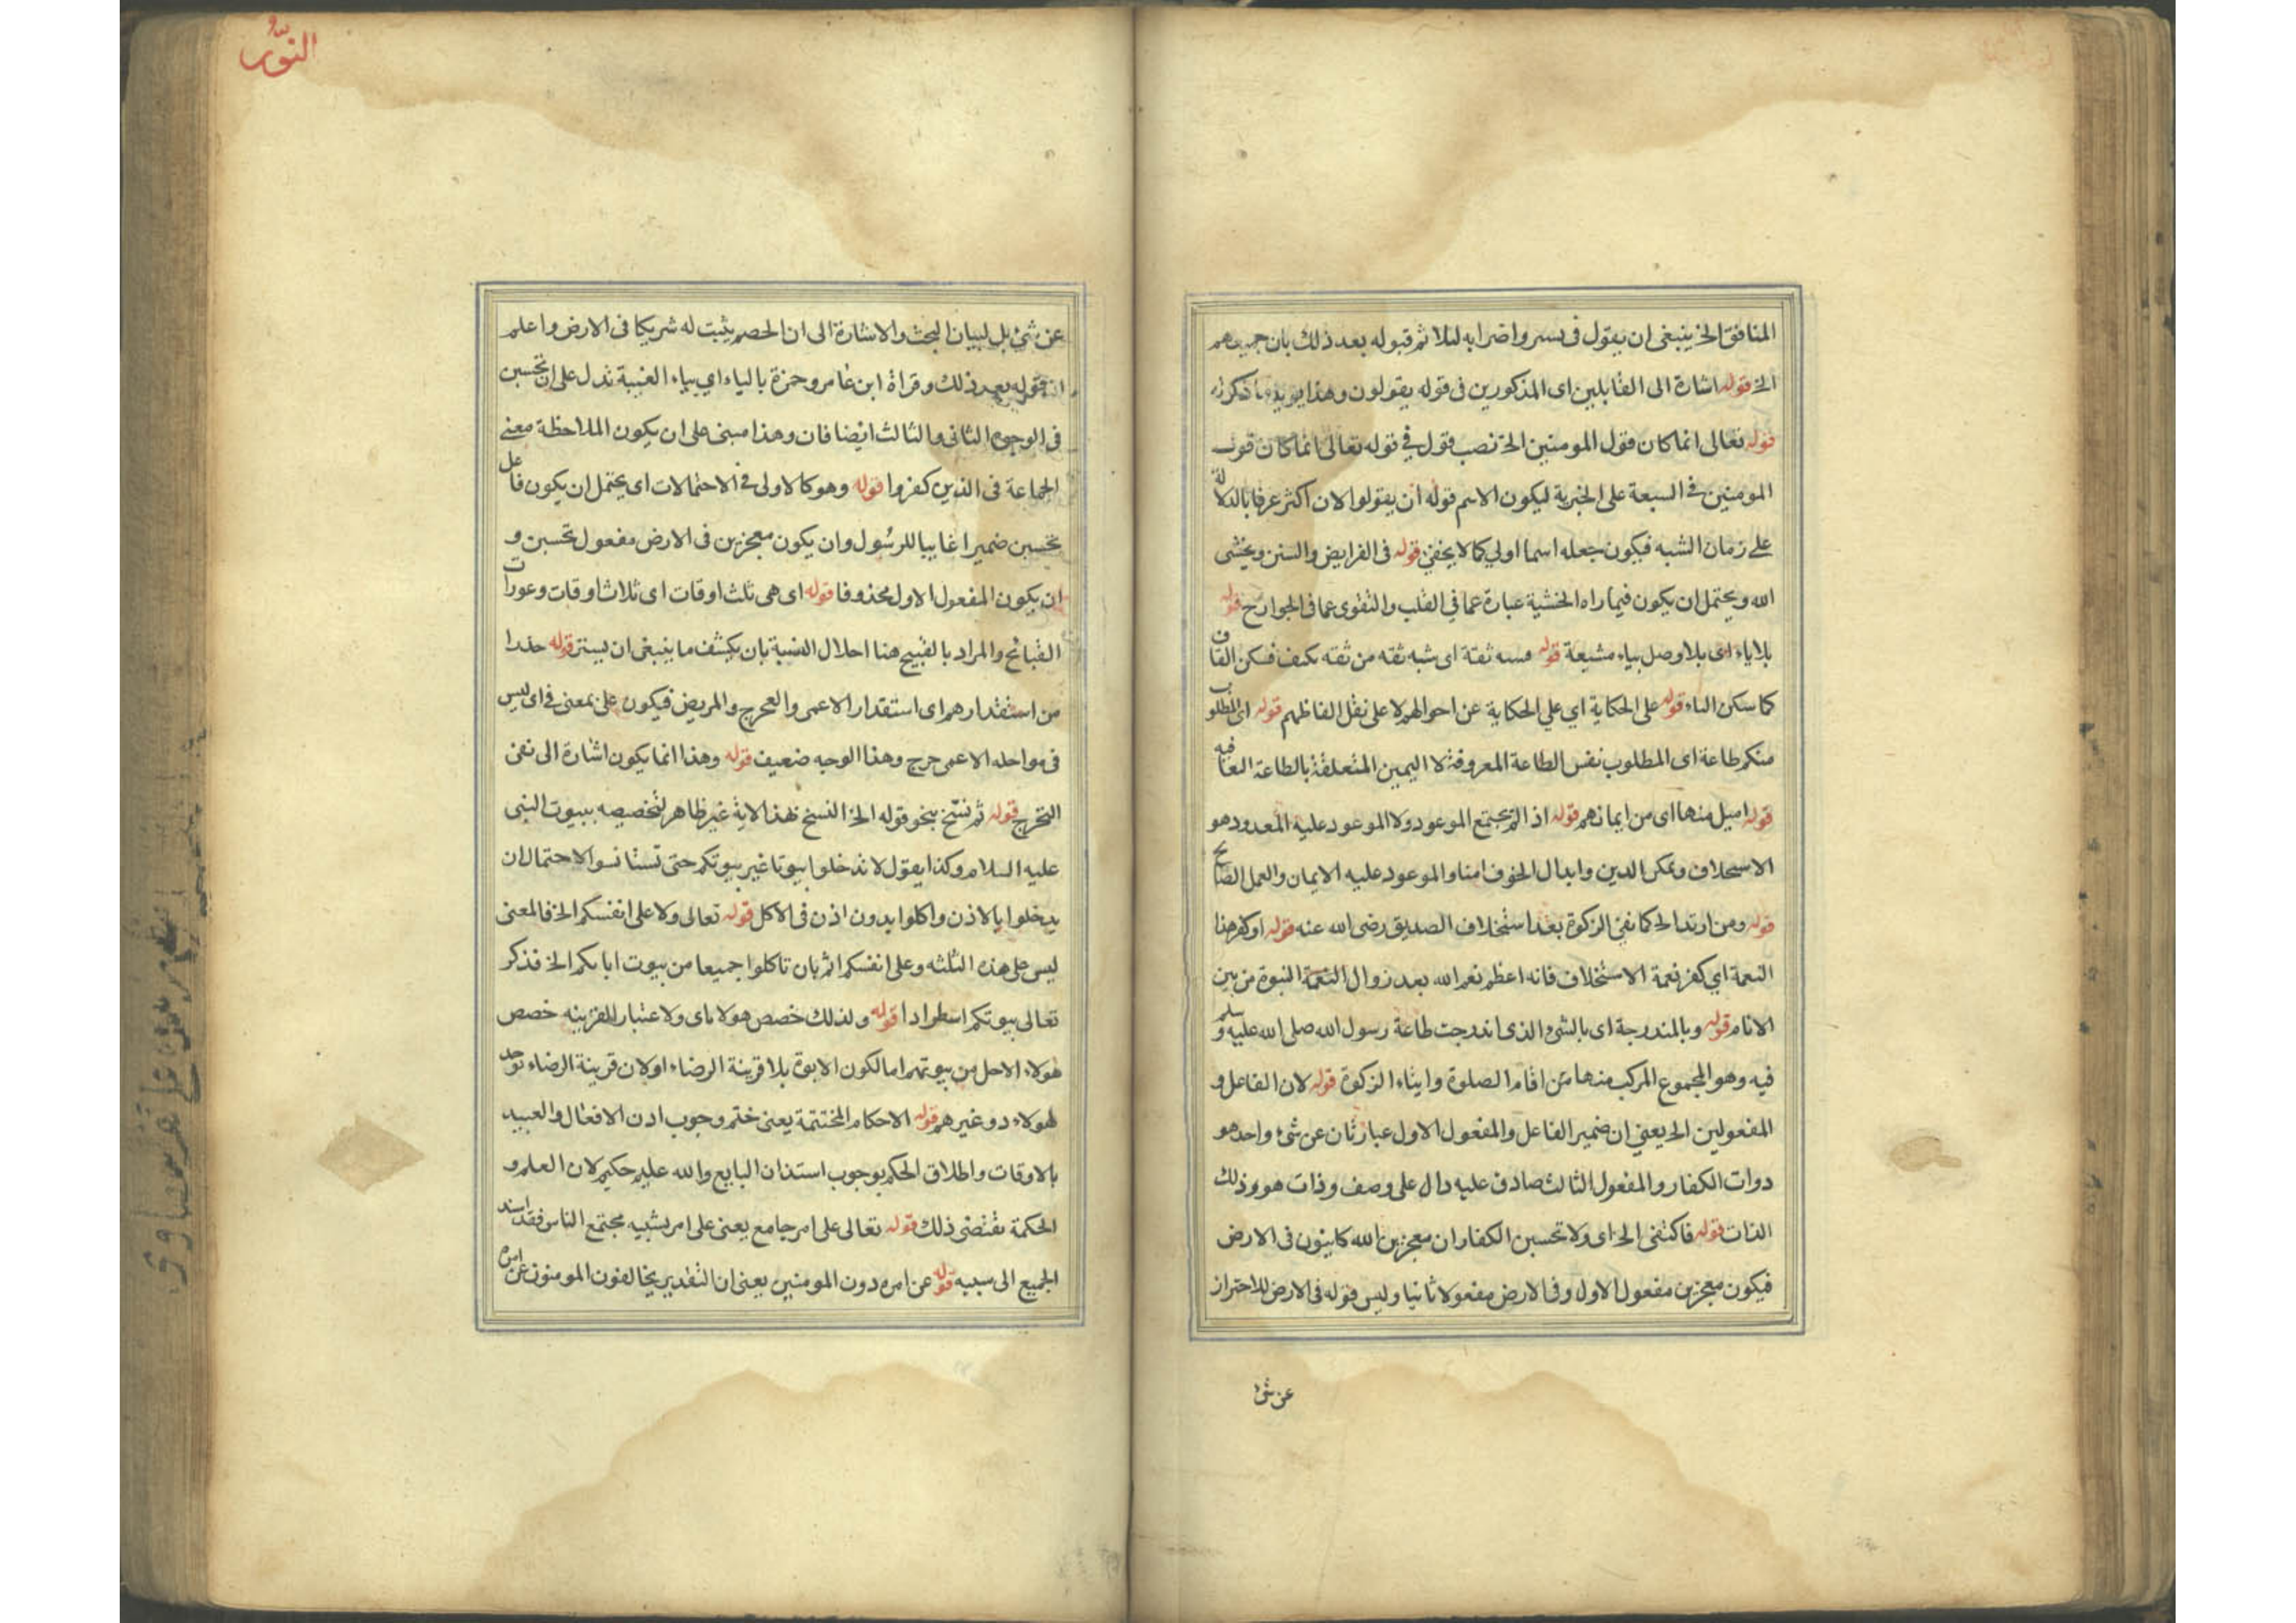 المنافق الخ ينبغى ان يقول فى بشر واضرابه لئلا ثم قبوله بعد ذلك بان
الخ قوله اشارة الى القايلين اى المذكورين فى قوله يقولون وهذا
قوله تعالى انما كان قول المومنين الخ نصب قول فى قوله تعالى انما كان قول
المومنين فى السبعة على الخبرية ليكون الاسم قوله ان يقولوا لان اكثر عرفا بالدلالة
على زمان الشبه فيكون جعله اسما اولي كما لا يخفى قوله فى الفرايض والسنن ويخشى
الله ويحتمل ان يكون فيما راه الخشية عبارة عما في القلب والتقوى عما فى الجوارح قوله
بلا ياء اى بلا وصل بياء مشبعة قوله ثقة اى شبه تقه من تقه بكتف فسكن القاف
كما سكن التاء قوله على الحكاية اي علي الحكاية عن احوالهم لا على نقل الفاظهم قوله اى المطلوب
منكم طاعة اى المطلوب نفس الطاعة المعروفة لا اليمين المتعلقة بالطاعة
قوله اميل منها اى من ايمانهم قوله اذ لم يجتمع الموعود ولا الموعود عليه المعدود هو
الاستخلاف وتمكن الدين وابدال الخوف امنا والموعود عليه الايمان والعمل الصالح
قوله ومن ارتد الخ كما نعى الزكوة بعد استخلاف الصديق رضى الله عنه قوله او كفر هذا
النعمة اي كفر نعمة الاستخلاف فانه اعظم نعم الله بعد زوال النعمة النبوة من بين
الانام قوله وبالمندرجة اى بالشئ الذى اندرجت طاعة رسول الله صلى الله عليه وسلم
فيه وهو المجموع المركب منها من اقام الصلوة وايتاء الزكوة قوله لان الفاعل و
المفعولين الخ يعني ان ضمير الفاعل والمفعول الاول عبارتان عن شئ واحد هو
دوات الكفار والمفعول الثالث صادق عليه دال على وصف وذات هو وذلك
الذات قوله فاكتفى الخ اى ولا تحسبن الكفار ان معجزين الله كاينون فى الارض
فيكون معجزين مفعول الاول وفى الارض مفعولا ثانيا وليس قوله فى الارض للاحتراز
عن شئ
النور
عن شئ بل لبيان البحث والاشارة الى ان الخصم يثبت له شريكا فى الارض واعلم
ان قوله بعد ذلك وقراة ابن عامر وحمزة بالياء اي بياء الغيبة تدل على ان تحسبن
فى الوجوه الثانى والثالث ايضا فان وهذا مبنى على ان يكون الملاحظة معنى
الجماعة فى الذين كفروا قوله وهو كالاولى فى الاحتمالات اى يحتمل ان يكون فاعل
تحسبن ضميرا غايبا للرسول وان يكون معجزين فى الارض مفعول تحسبن و
ان يكون المفعول الاول محذوفا قوله اى هى ثلث اوقات اى ثلاث اوقات وعورات
القبائح والمراد بالقبيح هنا احلال الستبة بان يكشف ما ينبغى ان يستر قوله حذرا
من استقذارهم اى استقدار الاعمى والعرج والمريض فيكون على بمعنى فى اى ليس
فى مواحله الاعمى حرج وهذا الوجه ضعيف قوله وهذا انما يكون اشارة الى نفى
التحرج قوله ثم نسخ بنحو قوله الخ النسخ لهذا الاية غير ظاهر لتخصيصه ببيوت النبى
عليه السلام وكذا يقول لا تدخلوا بيوتا غير بيوتكم حتى تستانسوا لاحتمال ان
يدخلوا بالاذن واكلوا بدون اذن فى الاكل قوله تعالى ولا على انفسكم الخ فالمعنى
ليس على هذه الثلثه وعلى انفسكم اثم بان تاكلوا جميعا من بيوت ابائكم الخ فذكر
تعالى بيوتكم اسطرادا قوله ولذلك خصص هولاء اى ولاعتبار القرينه خصص
هولاء الاحل من بيوتهم اما لكون الابوة بلا قرينة الرضاء او لان قرينة الرضاء توجد
لهولاء دو غيرهم قوله الاحكام المختتمة يعنى ختم وجوب ادن الافعال والعبيد
بالاوقات واطلاق الحكم بوجوب استذان البايع والله عليم حكيم لان العلم و
الحكمة يقتضى ذلك قوله تعالى على امر جامع يعنى على امر يشبه مجتمع الناس فقد اسند
الجميع الى سببه قوله عن امره دون المومنين يعنى ان التقدير يخالفون المومنون عن امره